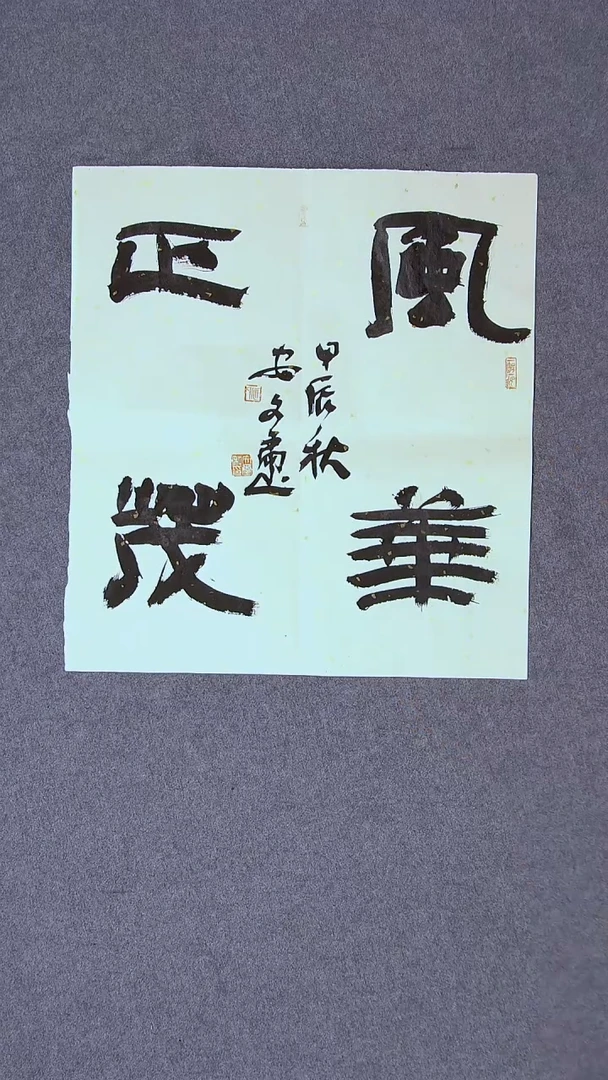 風華
正茂
甲辰秋
安文